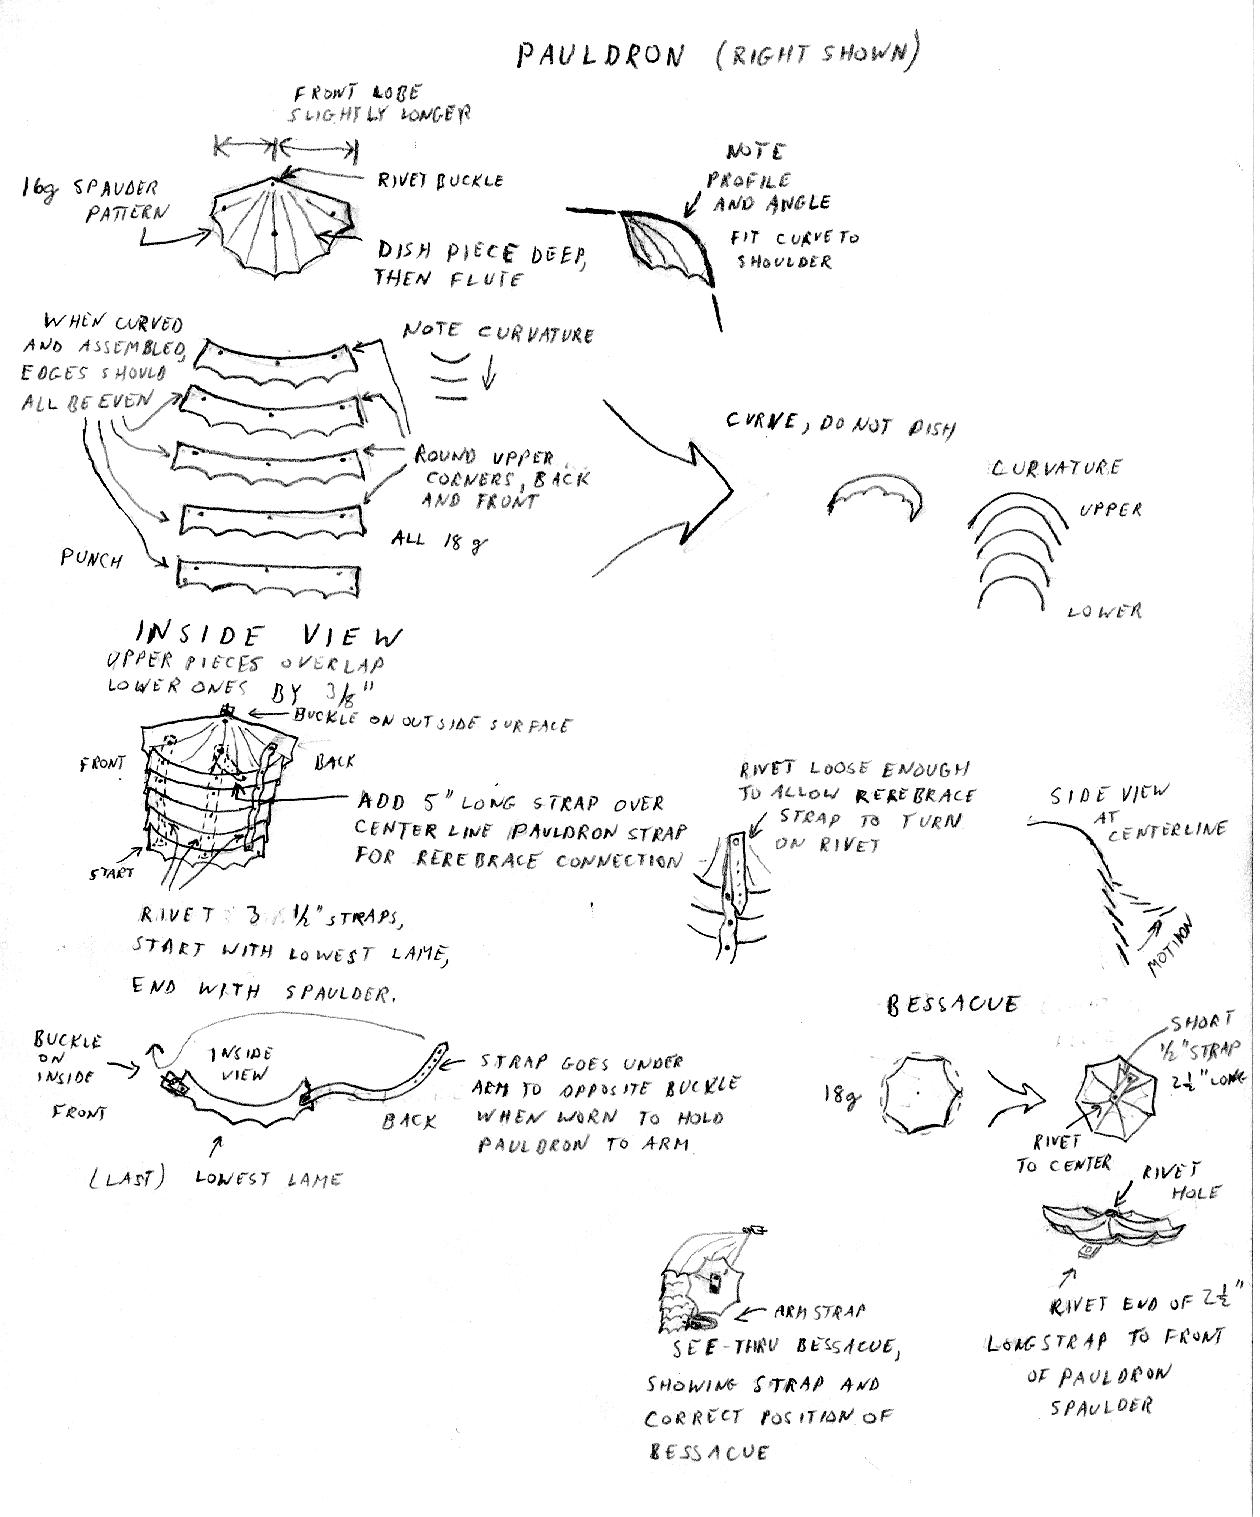 PAULDRON (RIGHT SHOWN)
FRONT LOBE
SLIGHTLY LONGER
16g SPAUDER
PATTERN
RIVET BUCKLE
DISH PIECE DEEP,
THEN FLUTE
NOTE
PROFILE
AND ANGLE
FIT CURVE TO
SHOULDER
WHEN CURVED
AND ASSEMBLED,
EDGES SHOULD
ALL BE EVEN
NOTE CURVATURE
ROUND UPPER
CORNERS, BACK
AND FRONT
ALL 18 g
PUNCH
CURVE, DO NOT DISH
CURVATURE
UPPER
LOWER
INSIDE VIEW
UPPER PIECES OVERLAP
LOWER ONES BY 3/8"
BUCKLE ON OUTSIDE SURFACE
FRONT
BACK
ADD 5" LONG STRAP OVER
CENTER LINE PAULDRON STRAP
FOR REREBRACE CONNECTION
START
RIVET 3 1/2" STRAPS,
START WITH LOWEST LAME,
END WITH SPAULDER.
RIVET LOOSE ENOUGH
TO ALLOW REREBRACE
STRAP TO TURN
ON RIVET
SIDE VIEW
AT
CENTERLINE
MOTION
BUCKLE
ON
INSIDE
FRONT
INSIDE
VIEW
BACK
STRAP GOES UNDER
ARM TO OPPOSITE BUCKLE
WHEN WORN TO HOLD
PAULDRON TO ARM
(LAST) LOWEST LAME
BESSAGUE
18g
SHORT
1/2" STRAP
2 1/2" LONG
RIVET
TO CENTER
RIVET
HOLE
RIVET END OF 2 1/2"
LONG STRAP TO FRONT
OF PAULDRON
SPAULDER
ARM STRAP
SEE-THRU BESSAGUE,
SHOWING STRAP AND
CORRECT POSITION OF
BESSAGUE